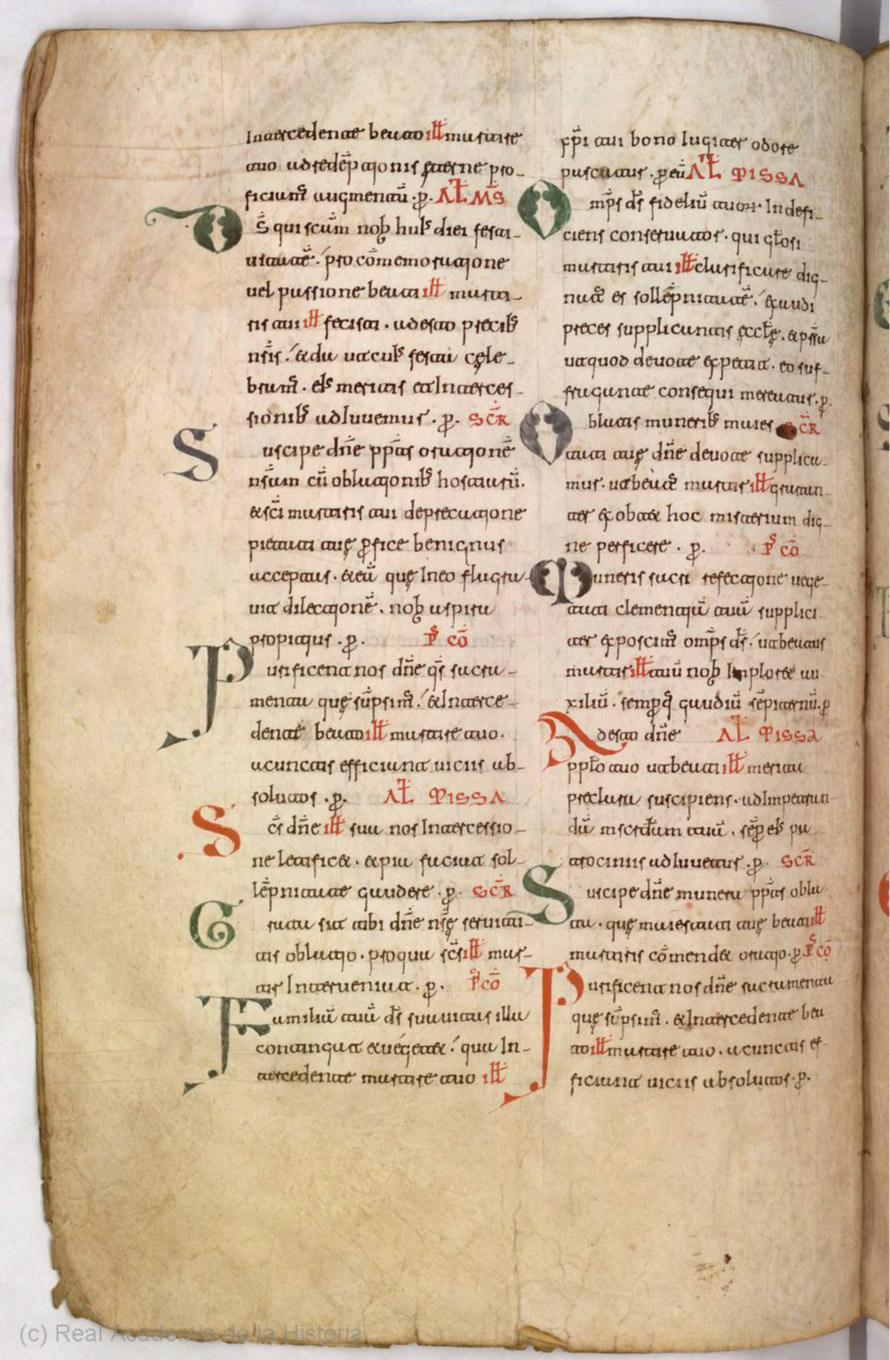 Intercedente beato ill martire
tuo ad redēptionis ęterne pro-
ficiam̄ augmentū · p̄ · AL̄ MS̄
Ds̄ qui sc̄am nob̄ huḰ diei festi-
uitatē ·́ pro cōmemoratione
uel passione beati ill marti-
ris tui ill fecisti · adesto precib;
nr̄is ·́ & da ut cuḰ festa cęle-
bram̄ · eḰ meritis et Interces-
sionib; adIuuemur · p̄ · SCR̄
Suscipe dn̄e pp̄ts orationē
nr̄am cū oblationib; hostiarū ·
& sc̄i martiris tui deprecatione
pietati tuę p̄fice benignus
acceptas · & eū quę In eo flagra-
uit dilectionē · nob̄ aspira
propitius · p̄ · P̄ CŌ
Purificent nos dn̄e qs̄ sacra-
menta quę sūpsim̄ ·́ & Interce-
dente beato ill martire tuo ·
a cunctis efficiant uiciis ab-
solutos · p̄ · AL̄ MISSA
Sc̄s dn̄e ill sua nos Intercessio-
ne letific& · & pia faciat sol-
lēpnitate gaudere · p̄ · SCR̄
Grata sit tibi dn̄e nr̄ę seruitu-
tis oblatio · pro qua sc̄s ill mar-
tir Interueniat · p̄ · P̄ CŌ
Familiā tuā ds̄ suauitas illa
contingat & ueget& ·́ qua In-
tercedente martire tuo ill
xp̄i tui bono Iugiter odore
pascatur · p̄ eū AL̄ MISSA
Omp̄s ds̄ fideliū tuor · Indefi-
ciens conseruator · qui gl̄osi
martiris tui ill clarificare dig-
natus es sollēpnitatē ·́ exaudi
preces supplicantis ęccl̄ę · & p̄sta
ut quod deuote expetit · eo suf-
fragante consequi mereatur · p̄
Oblatis munerib; maies SCR̄
tati tuę dn̄e deuote supplica-
mus · ut beatus martir ill gratan-
ter exobtet hoc misterium dig-
ne perficere · p̄ · P̄ CŌ
Muneris sacri refectione uege-
tati clementiā tuā supplici
ter exposcim̄ omp̄s ds̄ ·́ ut beatus
martir ill tuū nob̄ Implor& au
xiliū · semp̄q; gaudiū sēpiternū · p̄
Adesto dn̄e AL̄ MISSA
pplo tuo ut beati ill merita
preclara suscipiens · ad Impetran
dā misc̄diam tuā · sēp̄ eḰ pa
trociniis adIuuetur · p̄ · SCR̄
Suscipe dn̄e munera pp̄ts obla
ta · quę maiestati tuę beati ill
martiris cōmend& oratio · p̄ P̄ CŌ
Purificent nos dn̄e sacramenta
quę sūpsim̄ · & Intercedente bea
to ill martire tuo · a cunctis ef-
ficiant uiciis absolutos · p̄ ·
(c) Real Academia de la Historia